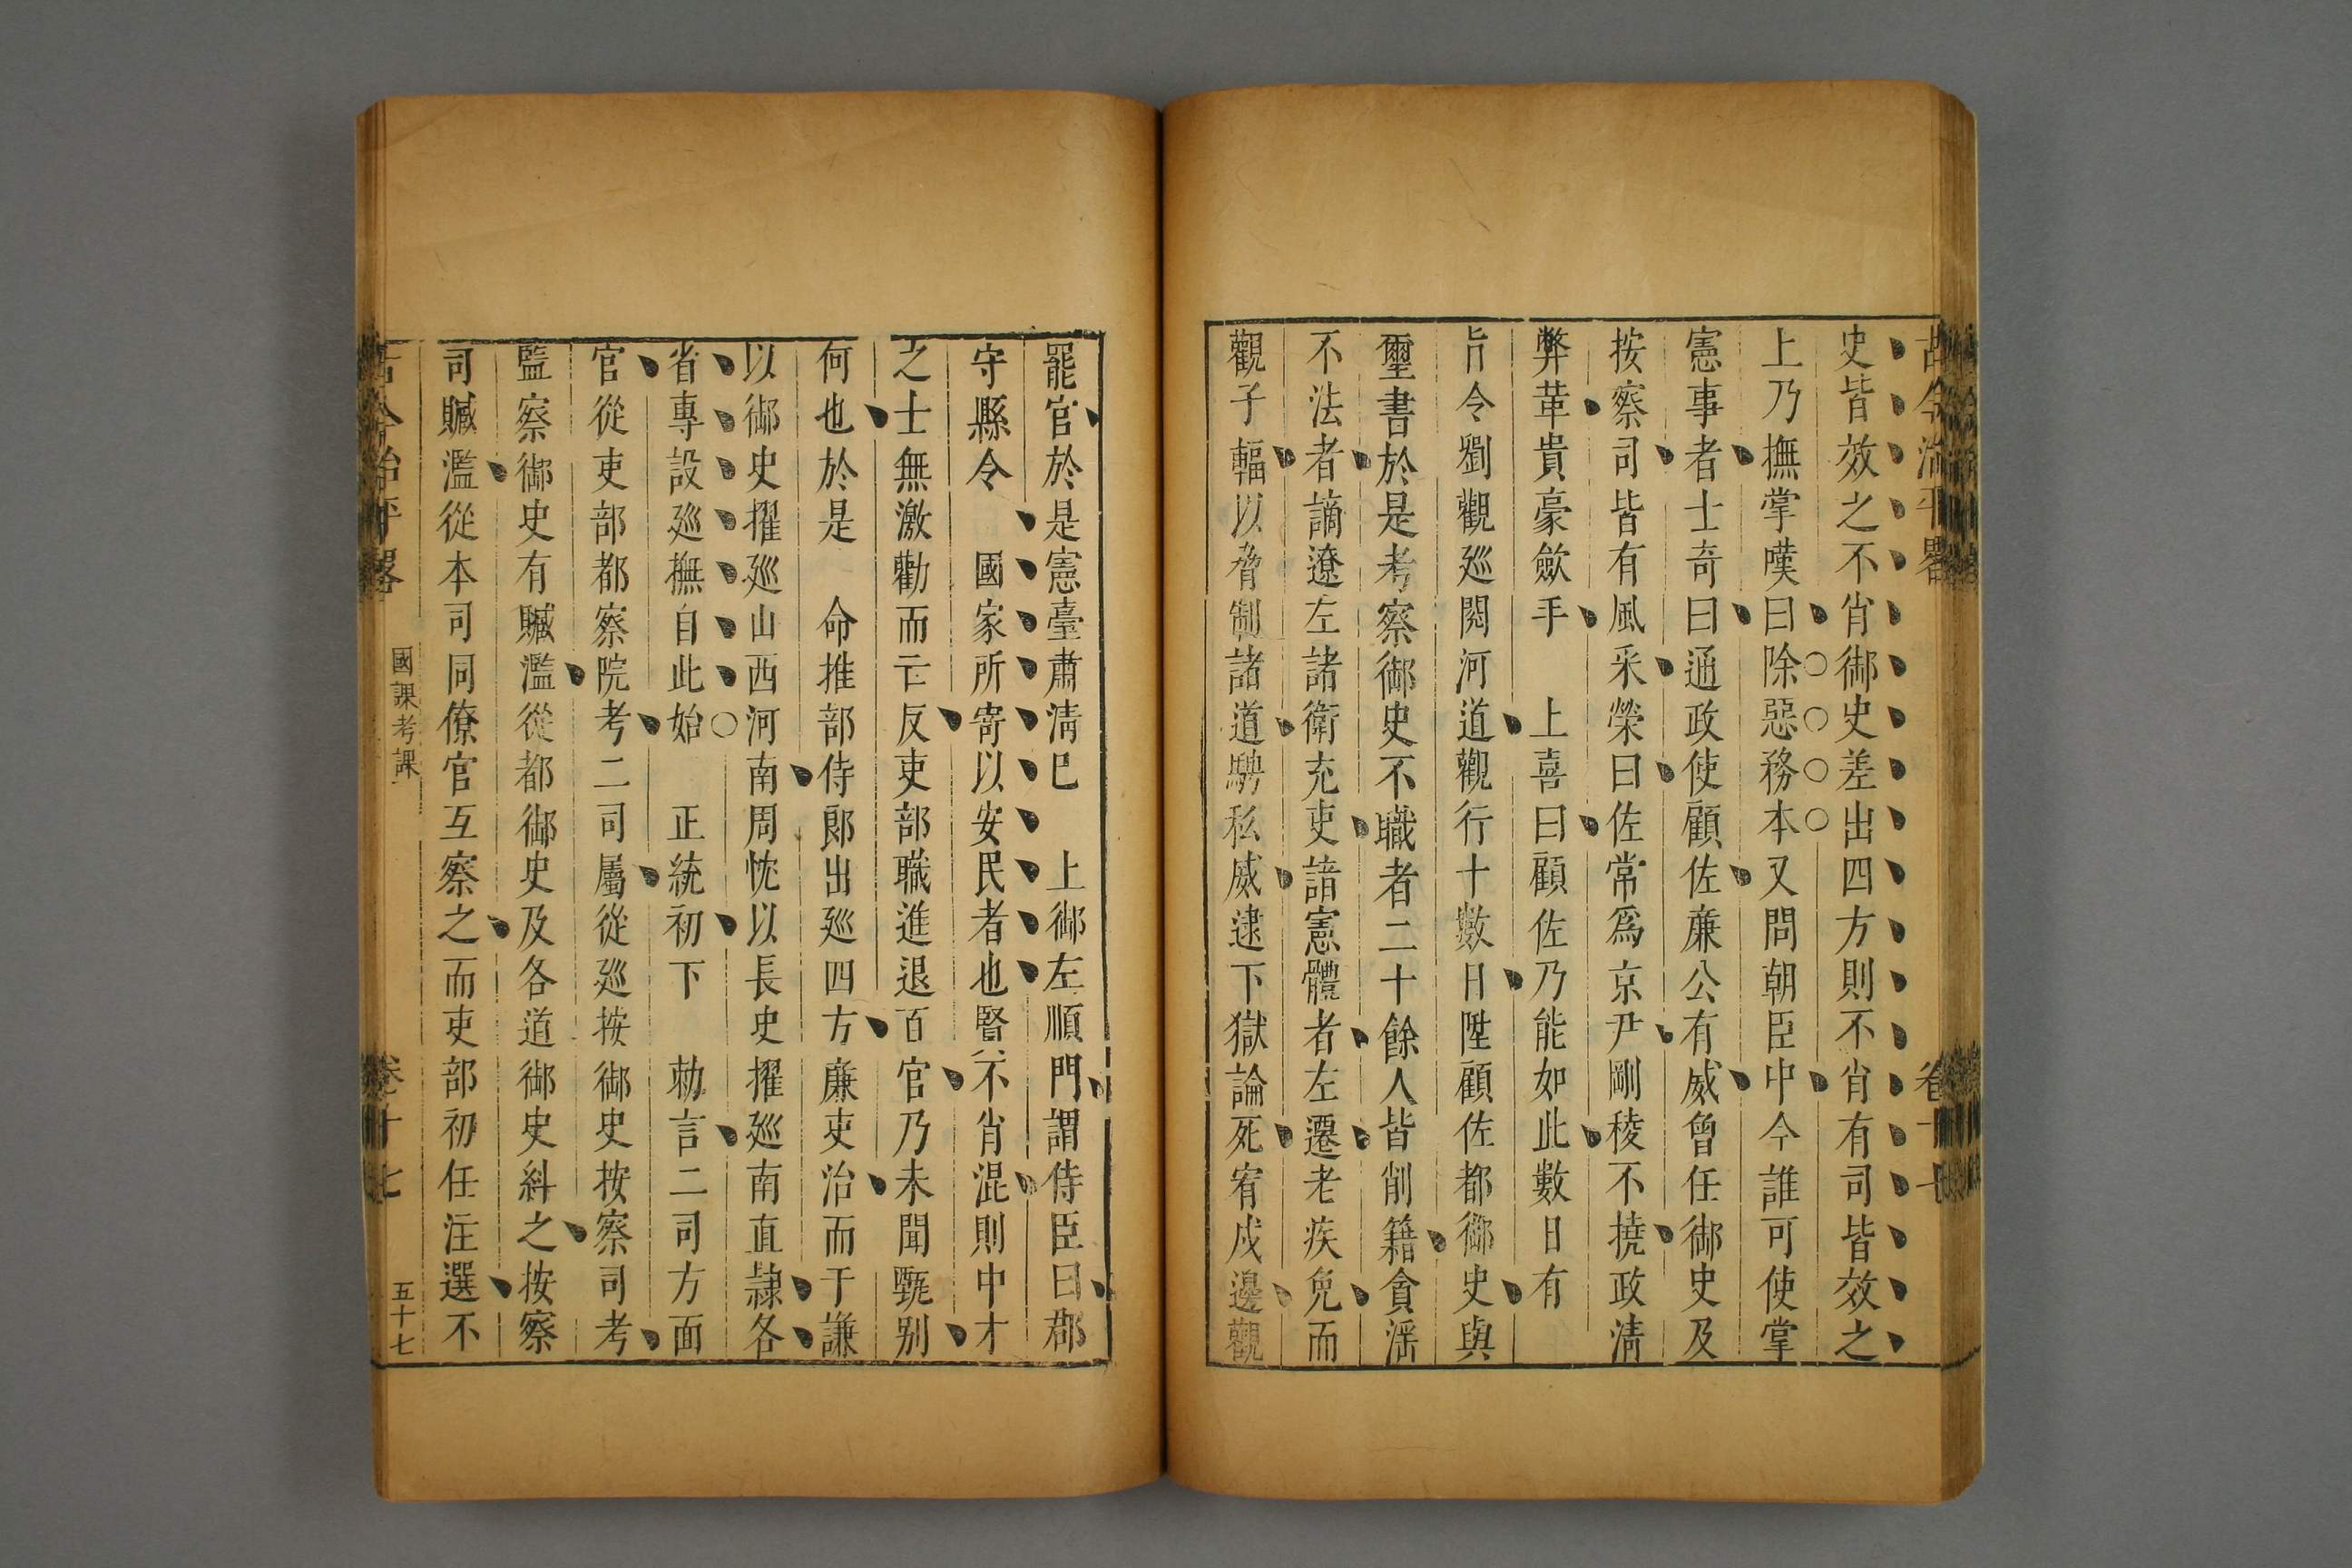 古今治平畧 卷十七
史皆效之不肖御史差出四方則不肖有司皆效之
上乃撫掌嘆曰除惡務本又問朝臣中今誰可使掌
憲事者士奇曰通政使顧佐廉公有威曾任御史及
按察司皆有風采榮曰佐常爲京尹剛稜不撓政淸
弊革貴豪歛手　上喜曰顧佐乃能如此數日有
旨令劉觀廵閱河道觀行十數日陞顧佐都御史與
璽書於是考察御史不職者二十餘人皆削籍貪淫
不法者謫遼左諸衛充吏諳憲體者左遷老疾免而
觀子輻以脅制諸道騁私威逮下獄論死宥戍邊觀
罷官於是憲臺肅淸巳　上御左順門謂侍臣曰郡
守縣令　國家所寄以安民者也賢不肖混則中才
之士無激勸而亡反吏部職進退百官乃未聞甄别
何也於是　命推部侍郎出廵四方廉吏治而于謙
以御史擢廵山西河南周忱以長史擢廵南直隷各
省專設廵撫自此始　正統初下　勅言二司方面
官從吏部都察院考二司屬從廵按御史按察司考
監察御史有贓濫從都御史及各道御史糾之按察
司贓濫從本司同僚官互察之而吏部初任注選不
古今治平畧 國課考課 卷十七 五十七